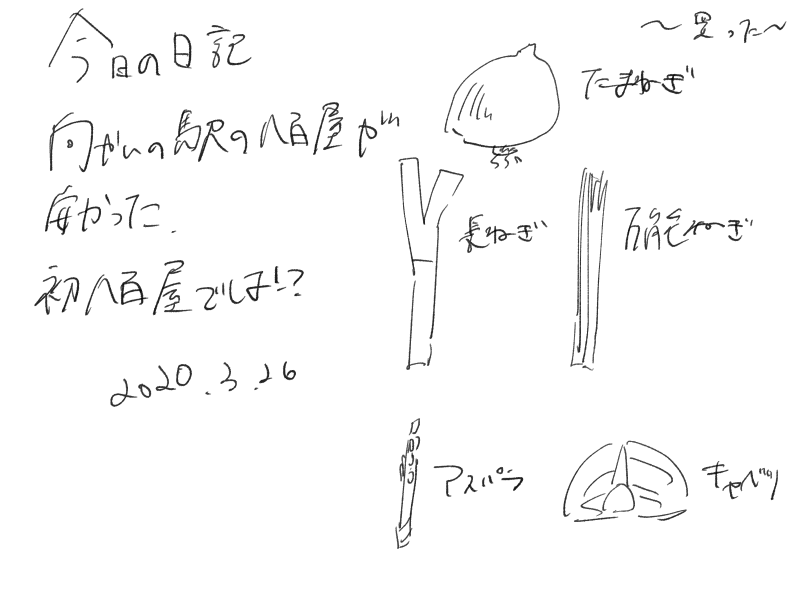 今日の日記
向かいの駅の八百屋が
安かった.
初八百屋でしょ!?
2020.3.26
～買った～
たまねぎ
長ねぎ
万能ねぎ
アスパラ
キャベツ